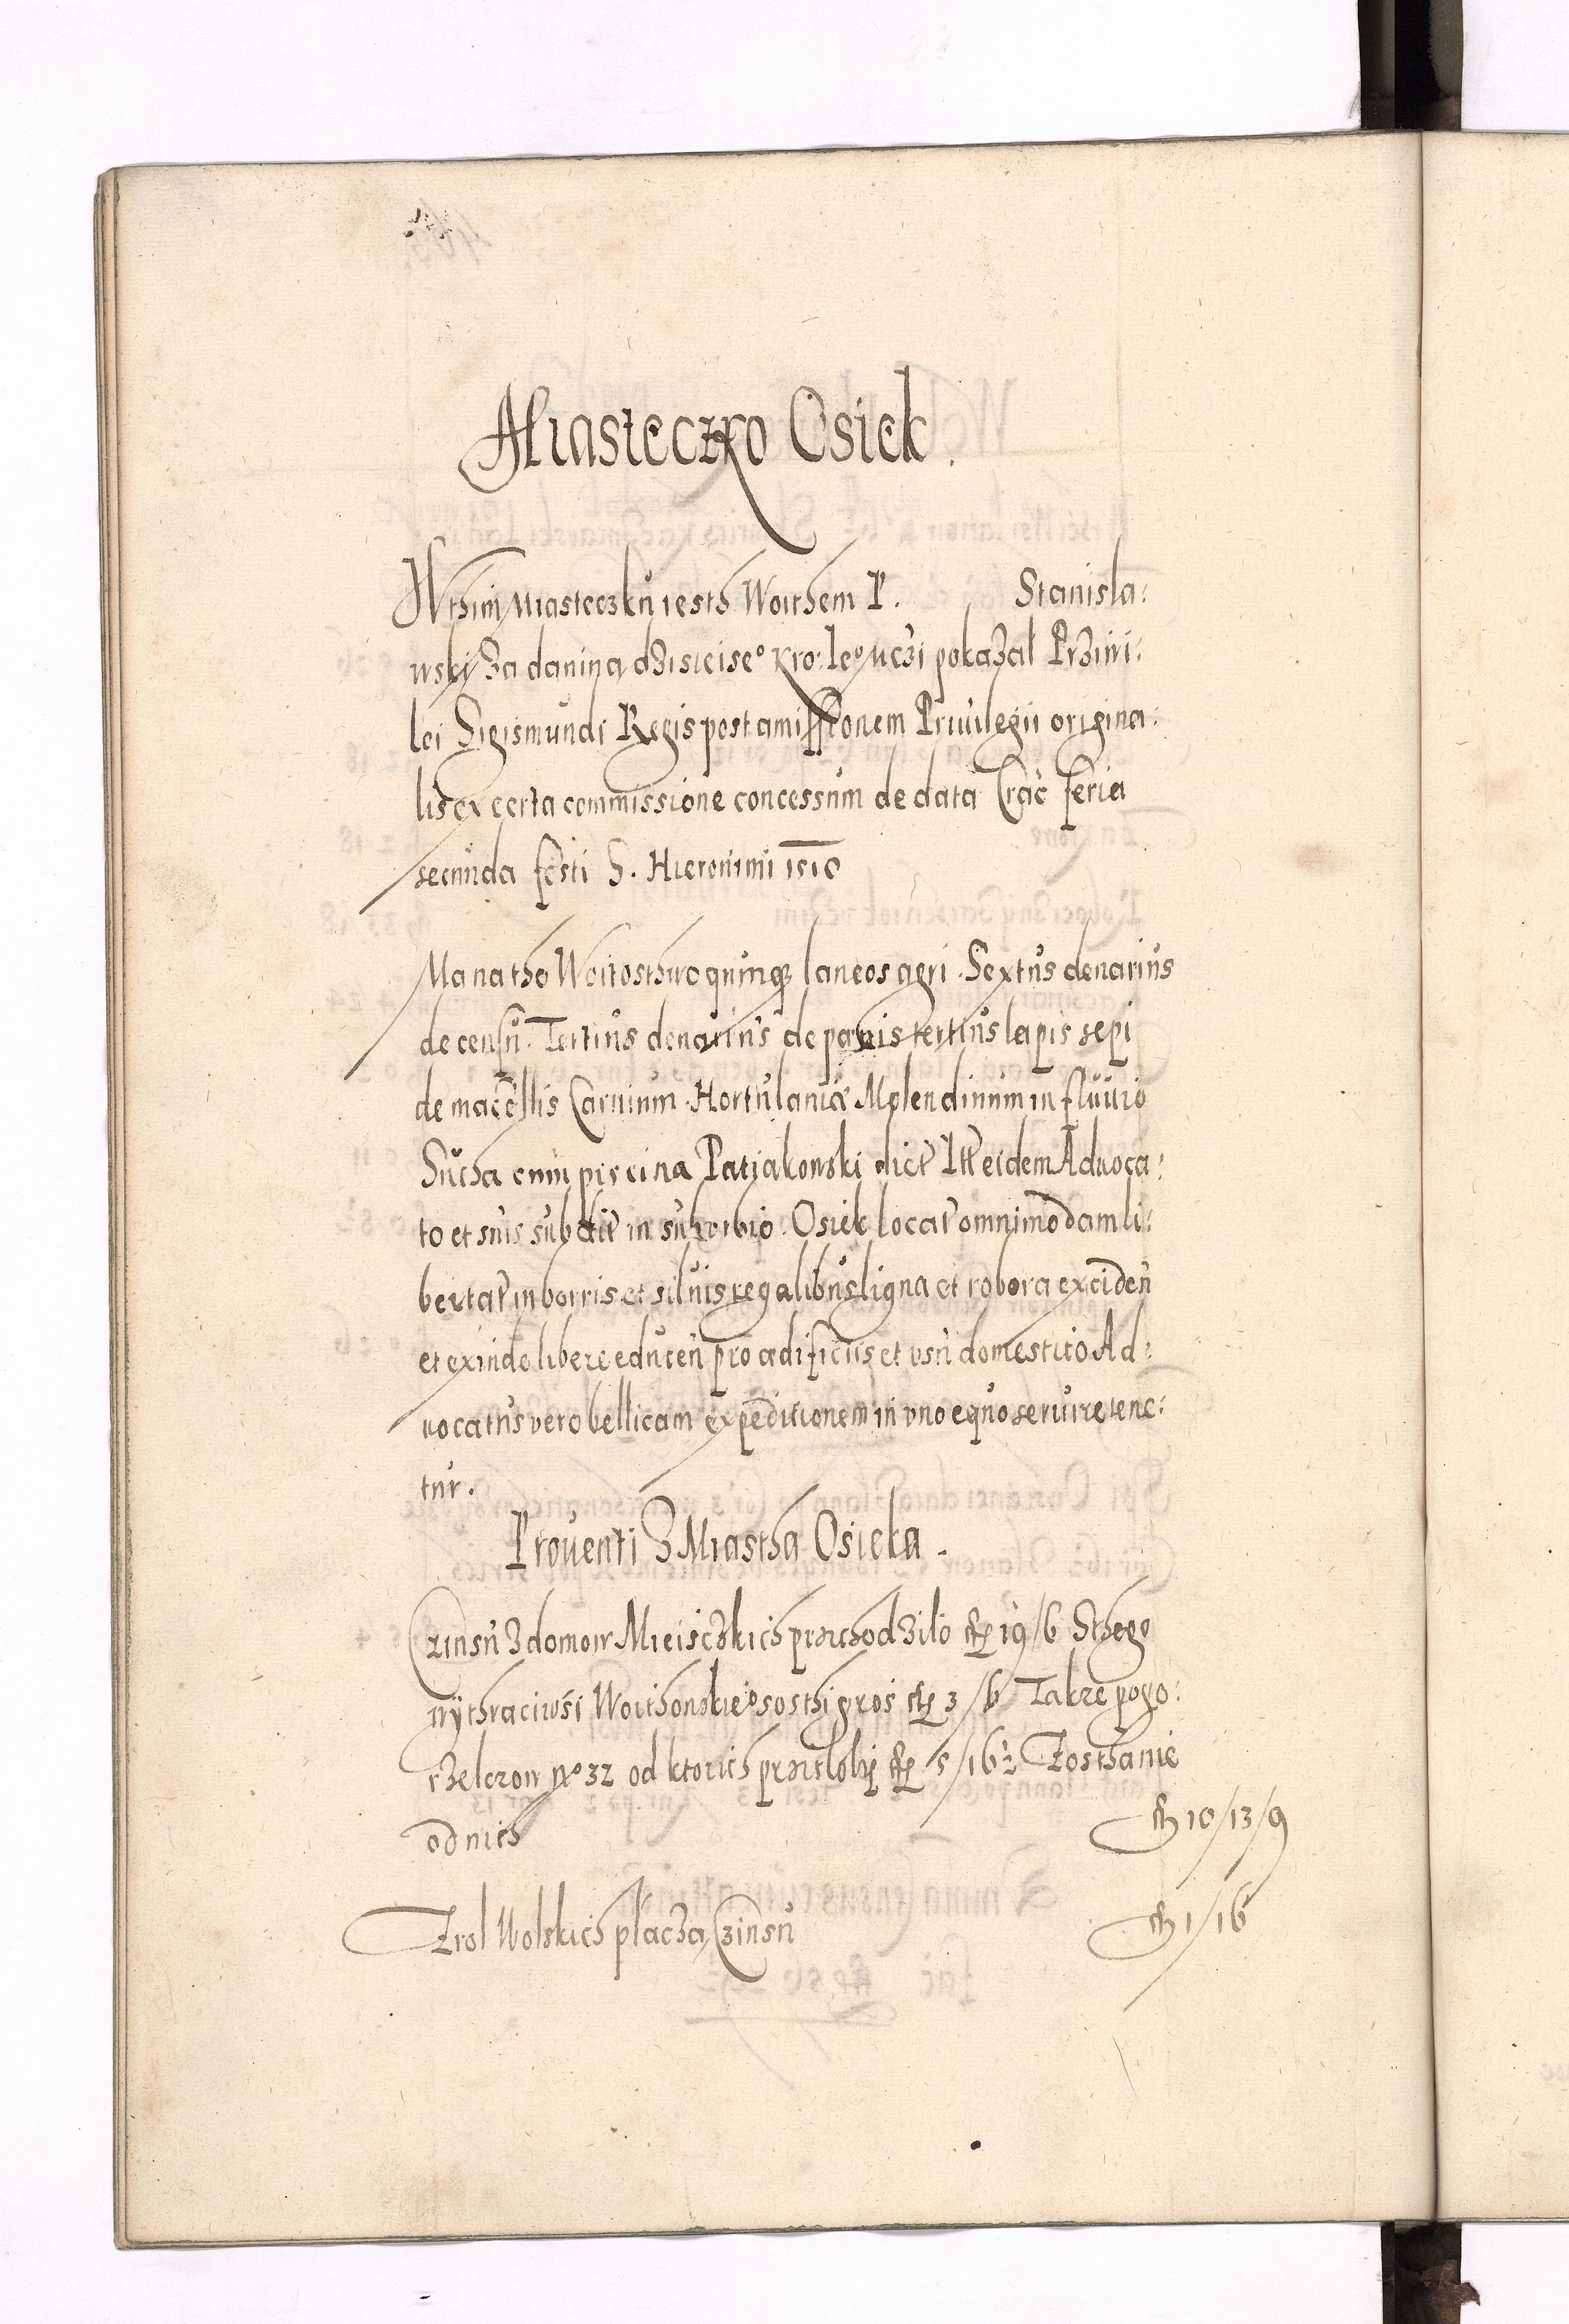 Miasteczko Osiek.
Wthim Miasteczku iesth Woithem P. Stanisla:
wski za danina dzisieiseo Kro: leo uczi pokazal Prziwi:
lei Sigismundi Regis post amissionem Priuilegii origina:
lis ex certa commissione concessum de data Crac feria
secunda festi S. Hieronimi 1510
Ma na tho Woitosthwo quinque laneos agri. Sextus denarius
de censu. Tertius denarius de panis tertius lapis sepi
de macellis Carnium. Hortulaniae Molendinum in fluuio
Sucha cum piscina Patiakowski dict Itt eidem Aduoca:
to et suis subdit in suburbio Osiek locat omnimodam li:
bertat in borris et siluis regalibus ligna et robora exciden
et exinde libere educen pro aedificiis et usu domestico Ad:
uocatus vero bellicam expeditionem in uno equo seruire tene:
tur.
Prouenti Z Miastha Osieka.
Czinsu z domow Mieisczkich przichodzilo 19/6 Sthego
wythraciwsi Woithowskieo sosthi gros 3/6 Takze pogo:
rzelczow No 32 od ktorich przisloby 5/16 2 Zosthanie
od nich 10/13/9
Z rol Wolskich placza Czinsu 1/16